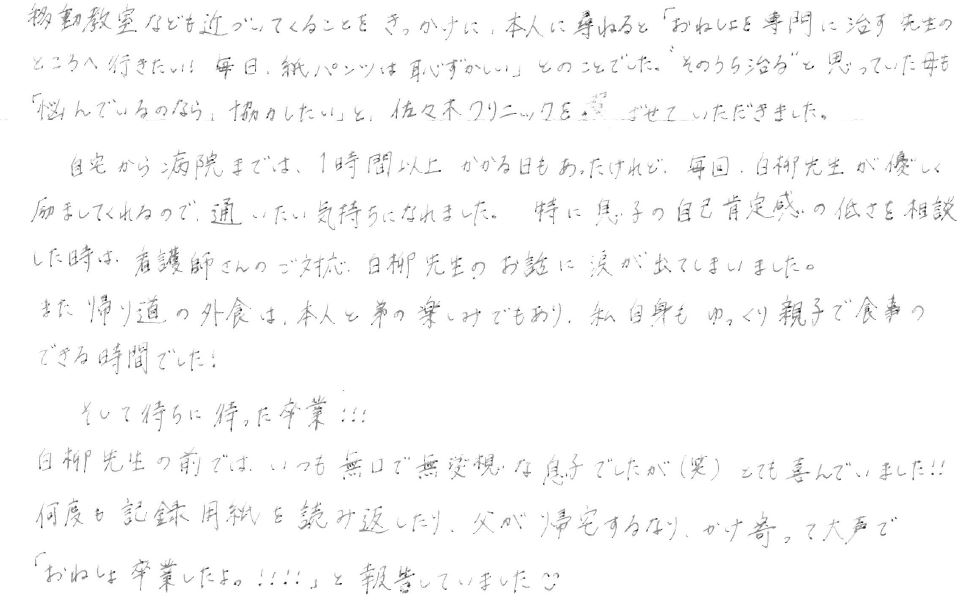 移動教室なども近づいてくることをきっかけに、本人に尋ねると「おねしょを専門に治す先生の
ところへ行きたい!! 毎日、紙パンツは恥ずかしい」とのことでした。“そのうち治る”と思っていた母も
「悩んでいるのなら、協力したい」と、佐々木クリニックを させていただきました。
自宅から病院までは、1時間以上かかる日もあったけれど、毎回、白柳先生が優しく
励ましてくれるので、通いたい気持ちになれました。 特に息子の自己肯定感の低さを相談
した時は、看護師さんのご対応、白柳先生のお話に涙が出てしまいました。
また帰り道の外食は、本人と弟の楽しみでもあり、私自身もゆっくり親子で食事の
できる時間でした!
そして待ちに待った卒業!!!
白柳先生の前では、いつも無口で無愛想な息子でしたが(笑) とても喜んでいました!!
何度も記録用紙を読み返したり、父が帰宅するなり、かけ寄って大声で
「おねしょ卒業したよ。!!!!」と報告していました